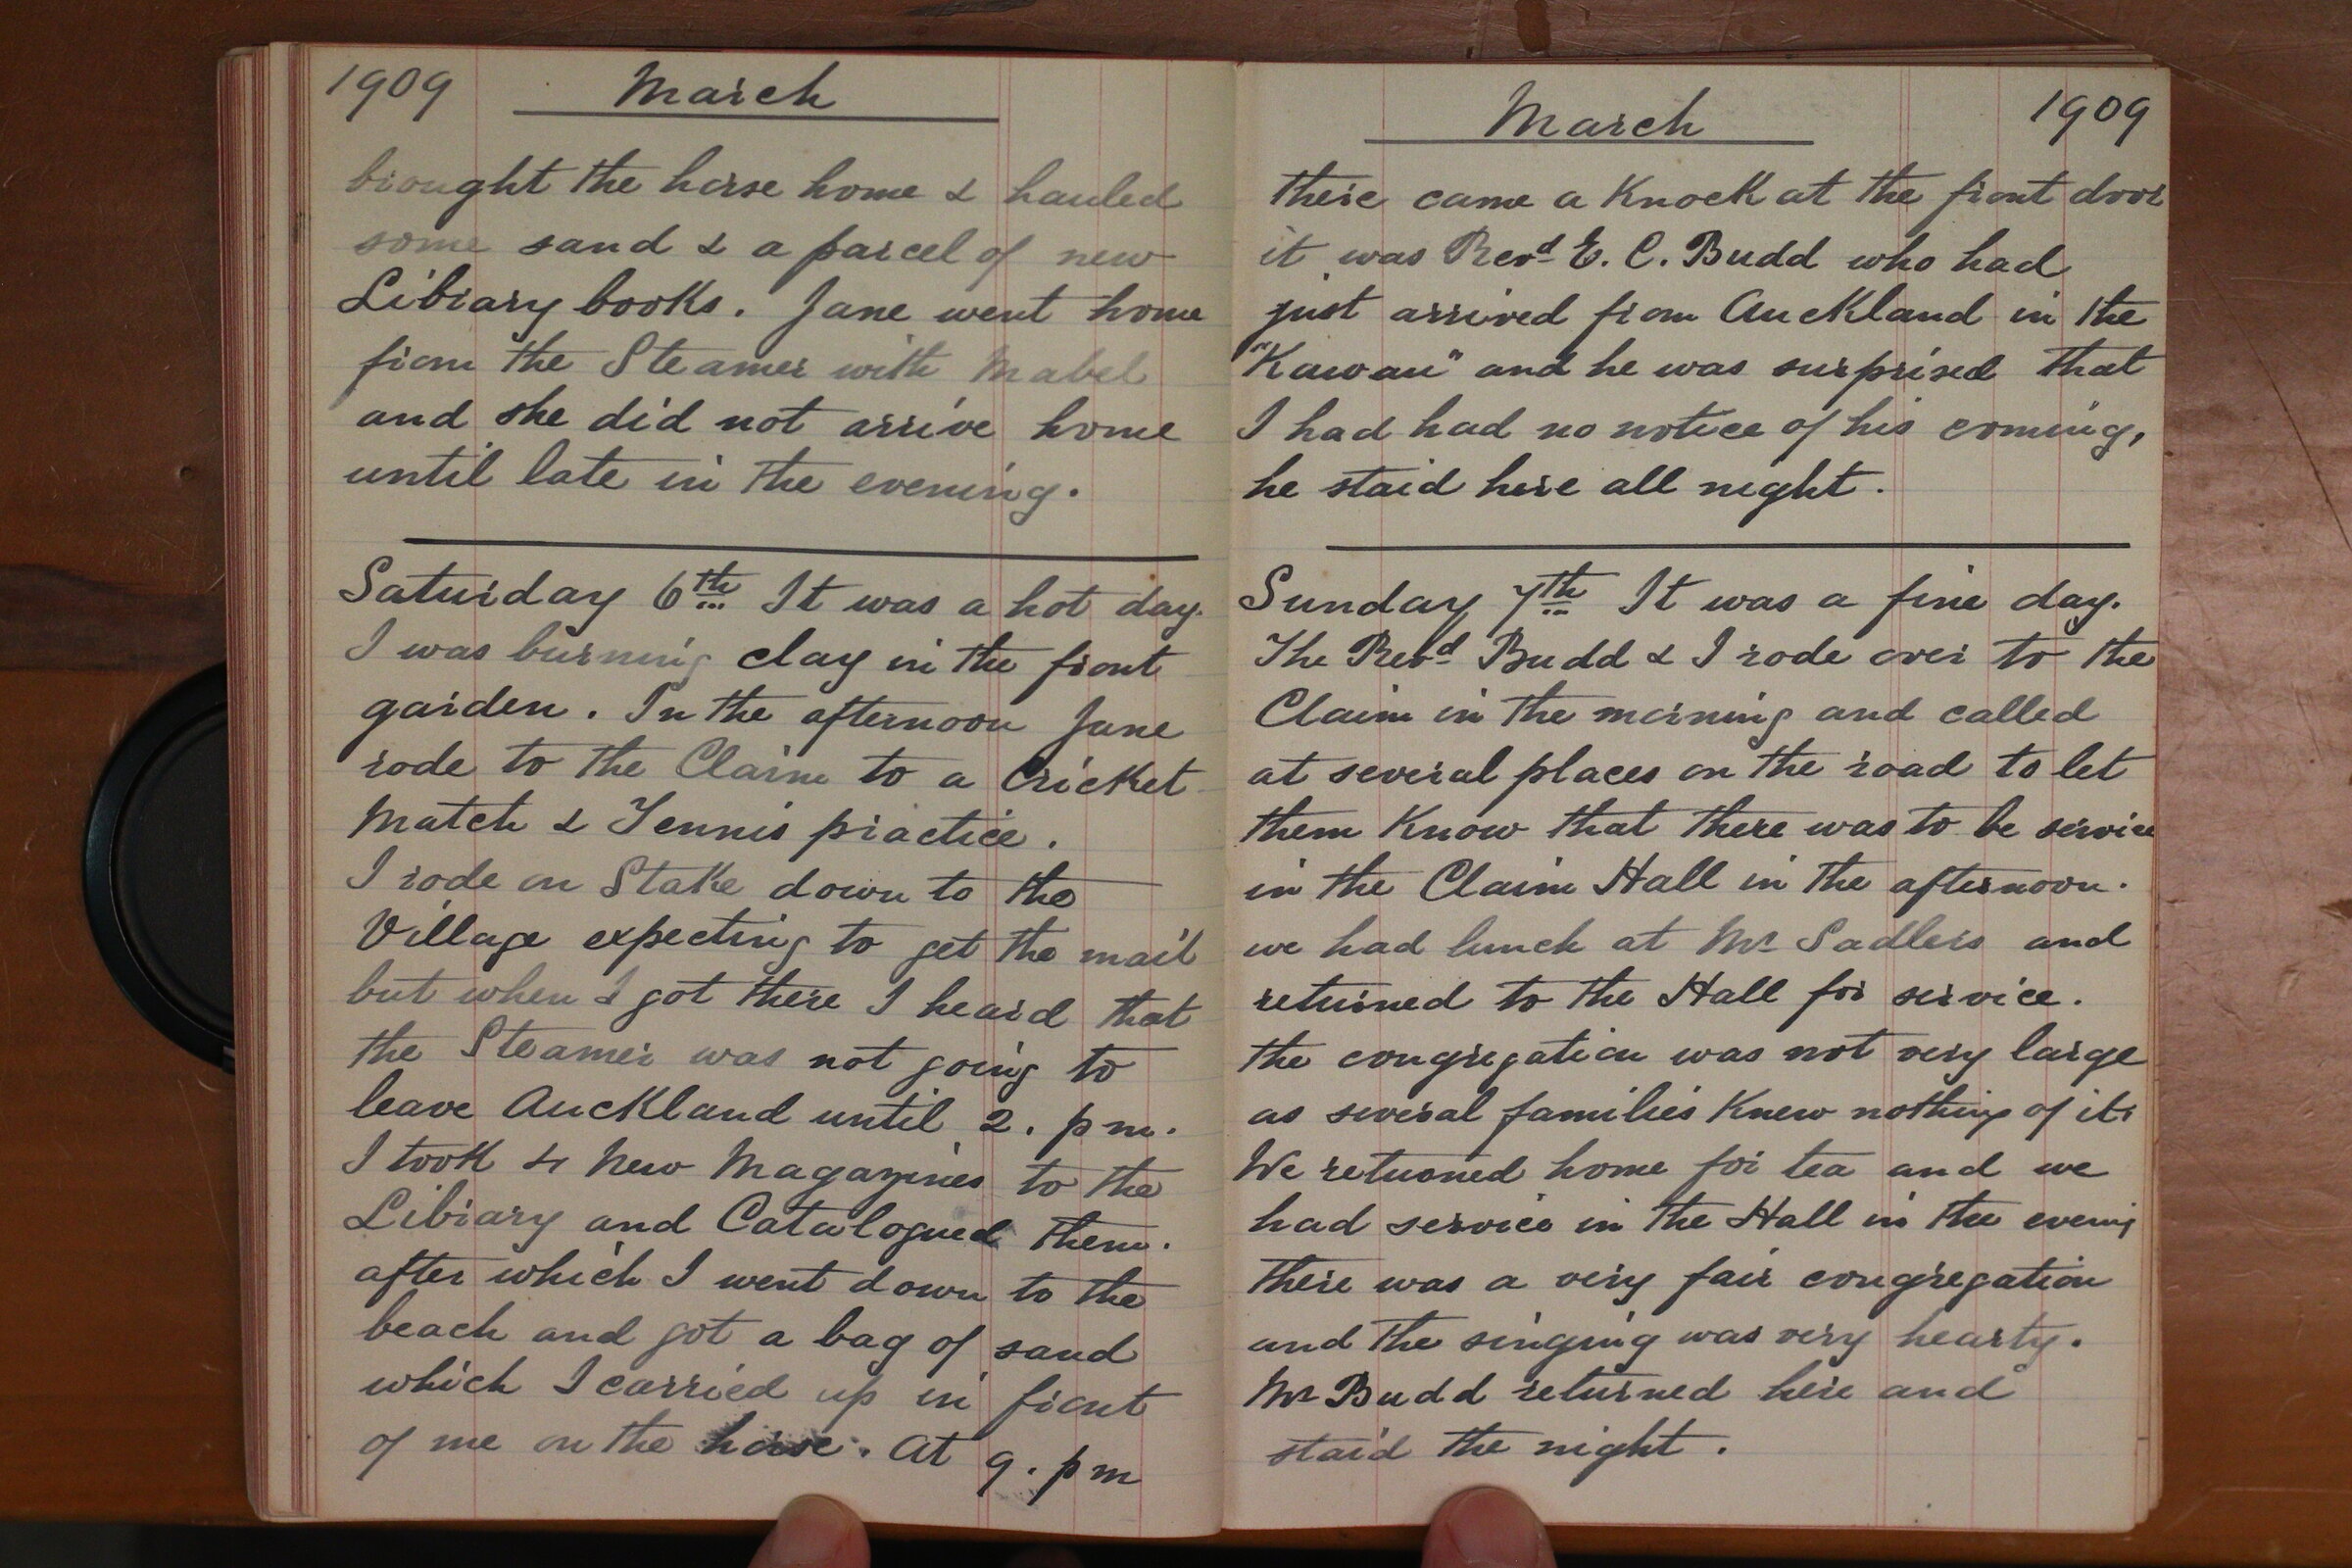 1909 March
brought the horse home & hauled
some sand & a parcel of new
Library books. Jane went home
from the Steamer with Mabel
and she did not arrive home
until late in the evening.
Saturday 6th It was a hot day.
I was burning clay in the front
garden. In the afternoon Jane
rode to the Claim to a Cricket
Match & Tennis practice.
I rode on Stake down to the
Village expecting to get the mail
but when I got there I heard that
the Steamer was not going to
leave Auckland until 2. pm.
I took 4 New Magazines to the
Library and Catalogued them.
after which I went down to the
beach and got a bag of sand
which I carried up in front
of me on the horse. At 9. pm
March 1909
there came a Knock at the front door
it was Revd E. C. Budd who had
just arrived from Auckland in the
"Kawau" and he was surprised that
I had had no notice of his coming,
he staid here all night.
Sunday 7th It was a fine day.
The Revd Budd & I rode over to the
Claim in the morning and called
at several places on the road to let
them Know that there was to be service
in the Claim Hall in the afternoon.
we had lunch at Mr Sadlers and
returned to the Hall for service.
the congregation was not very large
as several families Knew nothing of it.
We returned home for tea and we
had service in the Hall in the evening
there was a very fair congregation
and the singing was very hearty.
Mr Budd returned here and
staid the night.